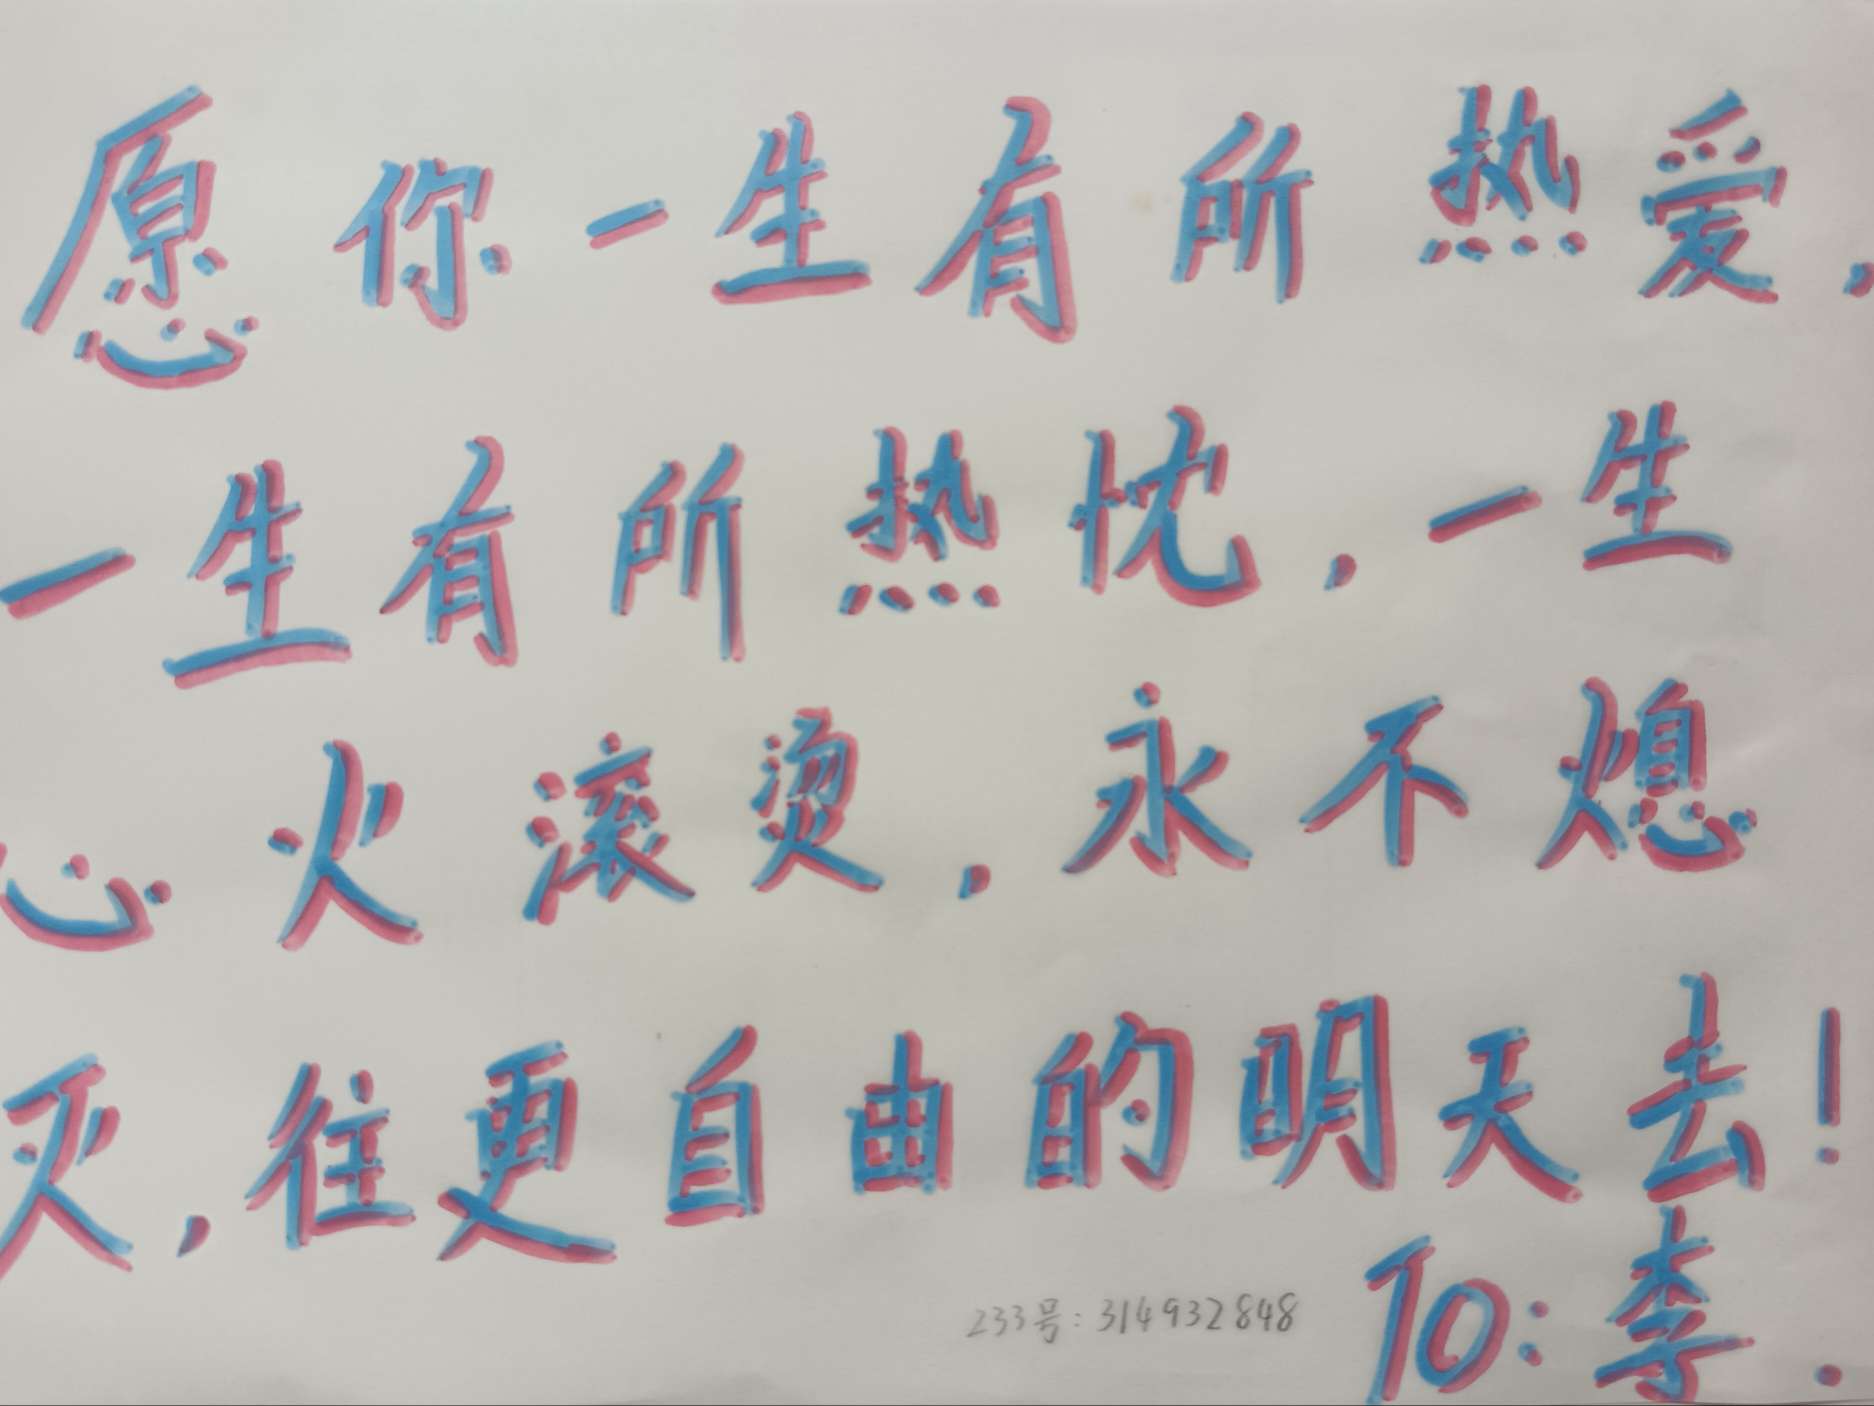 愿你一生有所热爱，
一生有所热忱，一生
心火滚烫，永不熄
灭，往更自由的明天去！
233号：314932848
TO：李.